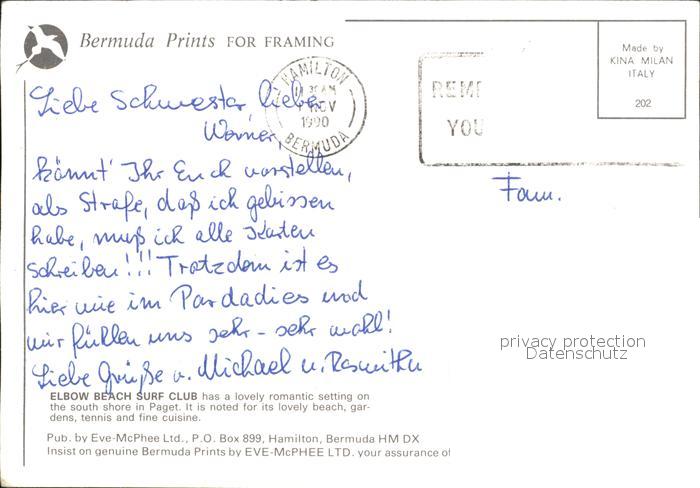 Bermuda Prints FOR FRAMING
Made by
KINA MILAN
ITALY
202
HAMILTON
NOV
1990
BERMUDA
REM
YOU
Liebe Schwester lieber
Werner,
könnt' Ihr Euch vorstellen,
als Strafe, daß ich gebissen
habe, muß ich alle Karten
schreiben!!! Trotzdem ist es
hier wie im Pardadies und
wir fühlen uns sehr - sehr wohl!
Liebe Grüße v. Michael u.
Fam.
privacy protection
Datenschutz
ELBOW BEACH SURF CLUB has a lovely romantic setting on
the south shore in Paget. It is noted for its lovely beach, gar-
dens, tennis and fine cuisine.
Pub. by Eve-McPhee Ltd., P.O. Box 899, Hamilton, Bermuda HM DX
Insist on genuine Bermuda Prints by EVE-MCPHEE LTD. your assurance of